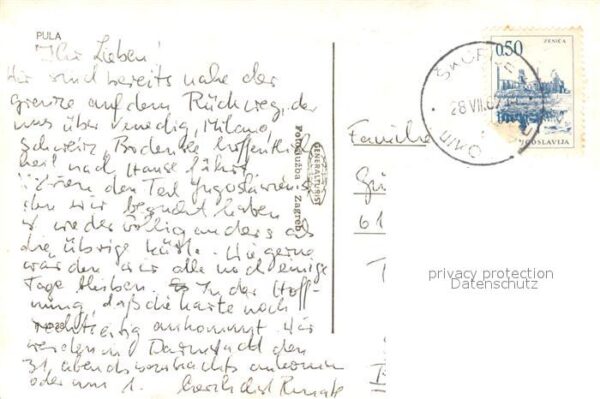 PULA
Ihr Lieben!
Wir sind bereits nahe der
Grenze auf dem Rückweg, der
uns über Venedig, Milano,
Schweiz Bodensee hoffentlich
heil nach Hause führt.
den Teil Jugoslawiens
den wir besucht haben
ist wieder völlig anders als
die übrige Küste. Wie gerne
würden wir alle noch einige
Tage bleiben. In der Hoff-
nung, daß die Karte noch
rechtzeitig ankommt. Wir
werden in Darmstadt den
31. abends ankommen
oder am 1. herzlichst Renate
GENERALTURIST
Fotoslužba - Zagreb
ZENICA
0,50
JUGOSLAVIJA
28 VII 67
Familie
Gü
61
T
privacy protection
Datenschutz